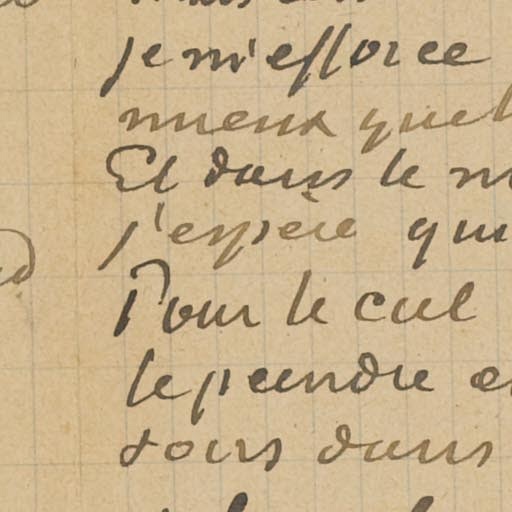 je m'efforce
mieux quel
Et dans le m
j'espère que
Pour le ciel
le peindre e
sous dans